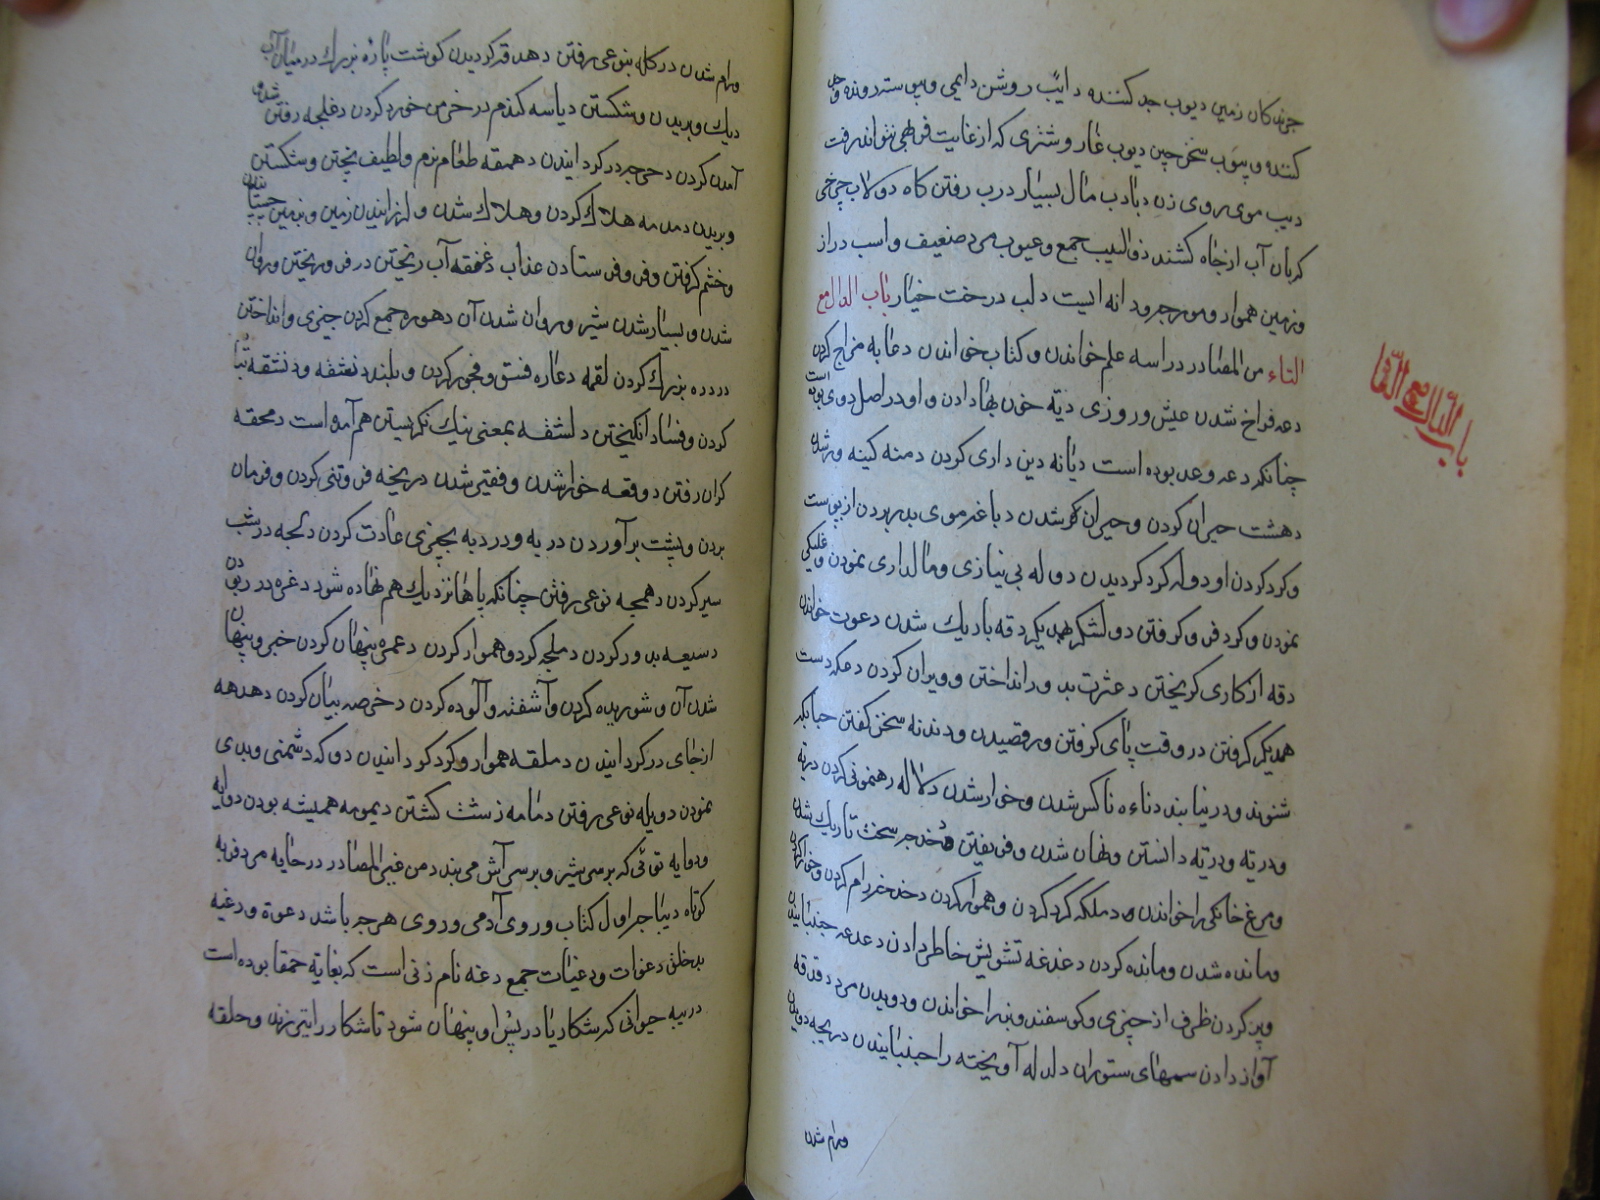 جزندکان زمین دیوب جد کننده دایب روشن دایمی وپیوسته رونده و
کننده وپیوب سخن چین دیوب غار وشتری که از غایت فربهی نتواند رفت
دیب موی روی زن دبادب مال بسیار درب رفتن کاه دولاب چرخی
کربان آب ازچاه کشند ذوالبیب جمع وعیوب مرد ضعیف واسب دراز
وزمین هموار ومور جرودانه ایست دلب درخت خیار باب الدال مع
التاء من المصادر دراسه علم خواندن وکتاب خواندن دعابه مزاح کردن
دعه فراخ شدن عیش وروزی دیة خون بها دادن واو در اصل ودی بوده است
چنانکه دعه وعد بوده است دیانه دین داری کردن دمنه کینه ور شدن
دهشت حیران کردن وحیران کور شدن دباغه موی بدر بردن از پوست
وکرد کردن او دوله کرد کردیدن دوله بی نیازی ومالداری نمودن وغلبکی
نمودن وکرد فرو کوفتن دو لشکر همدیکر دقه باریک شدن دعوت خواندن
دقه از کاری کریختن دعثرت بدور انداختن وویران کردن دعکه دست
همدیکر کرفتن در وقت پای کوفتن ورقصیدن ودندنه سخن کفتن چنانکه
شنوند ودر نیابند دناءه ناکس شدن وخوار شدن دلاله رهنمونی کردن دریه
ودریه ودریه دانستن ونهان شدن وفریفتن دخدجر سخت تاریک شدن
ومرغ خانکی را خواندن ودملکه کرد کردن وهموار کردن دخدخه رام کردن وخوار کردن
ومانده شدن ومانده کردن دغدغه تشویش خاطر دادن دعدعه جنبانیدن
وپر کردن ظرف از چیزی وکوسفند وبز را خواندن ودویدن مرد دقدقه
آواز دادن سمهای ستوران دلدله آویخته را جنبانیدن دربجه دویدن
ورام شدن
باب الدال مع التاء
ورام شدن در کله بنوعی رفتن دهدقه کردیدن کوشت پاره بزرك در میان آب
دیك وبریدن وشکستن دیاسه کندم در خرمن خورد کردن دغلجه رفتن
آمدن کردن دحرجه در کردانیدن دهمقه طعام نرم ولطیف پختن وشکستن
وبریدن دمدمه هلاك کردن وهلاك شدن ولرزانیدن زمین وبزمین چسبانیدن
وخشم کرفتن وفرو فرستادن عذاب دغفقه آب ریختن در فرو ریختن وروان
شدن وبسیار شدن شیر وروان شدن آن دهوره جمع کردن چیزی وانداختن
دردره بزرك کردن لقمه دعاره فسق وفجور کردن
کردن وفساد انکیختن دلشفه بمعنی نیك نکریستن هم آمده است دمحقه
کران رفتن دوقعه خوار شدن وفقیر شدن دربخه فروتنی کردن وفرمان
بردن وپشت برآوردن دریه ودردبه بچیزی عادت کردن دلجه در شب
سیر کردن دهمجه نوعی رفتن چنانکه پاها نزدیك هم نهاده شود دغره در ربودن
دسیعه بدور کردن دملجه کرد وهموار کردن دعمره پنهان کردن خبر وپنهان
شدن آن وشوریده کردن وآشفته وآلوده کردن دخرصه بیان کردن دهدهه
ازجای در کردانیدن دملقه هموار وکرد کردانیدن دوکه دشمنی وبدی
نمودن دویله نوعی رفتن دمامه زشت کشتن دیمومه همیشه بودن دوایه
ودوایه توئی که برسر شیر وبرسر آش می بندد من غیر المصادر درحایه مرد فربه
کوتاه دیباجه اول کتاب وروی آدمی وروی هرچه باشد دعوة ودغیه
بدخلق دعوات ودغیات جمع دغه نام زنی است که بغایة حمقا بوده است
دریه حیوانی که شکاریا در پس او پنهان شود تا شکار را تیر زند وحلقه